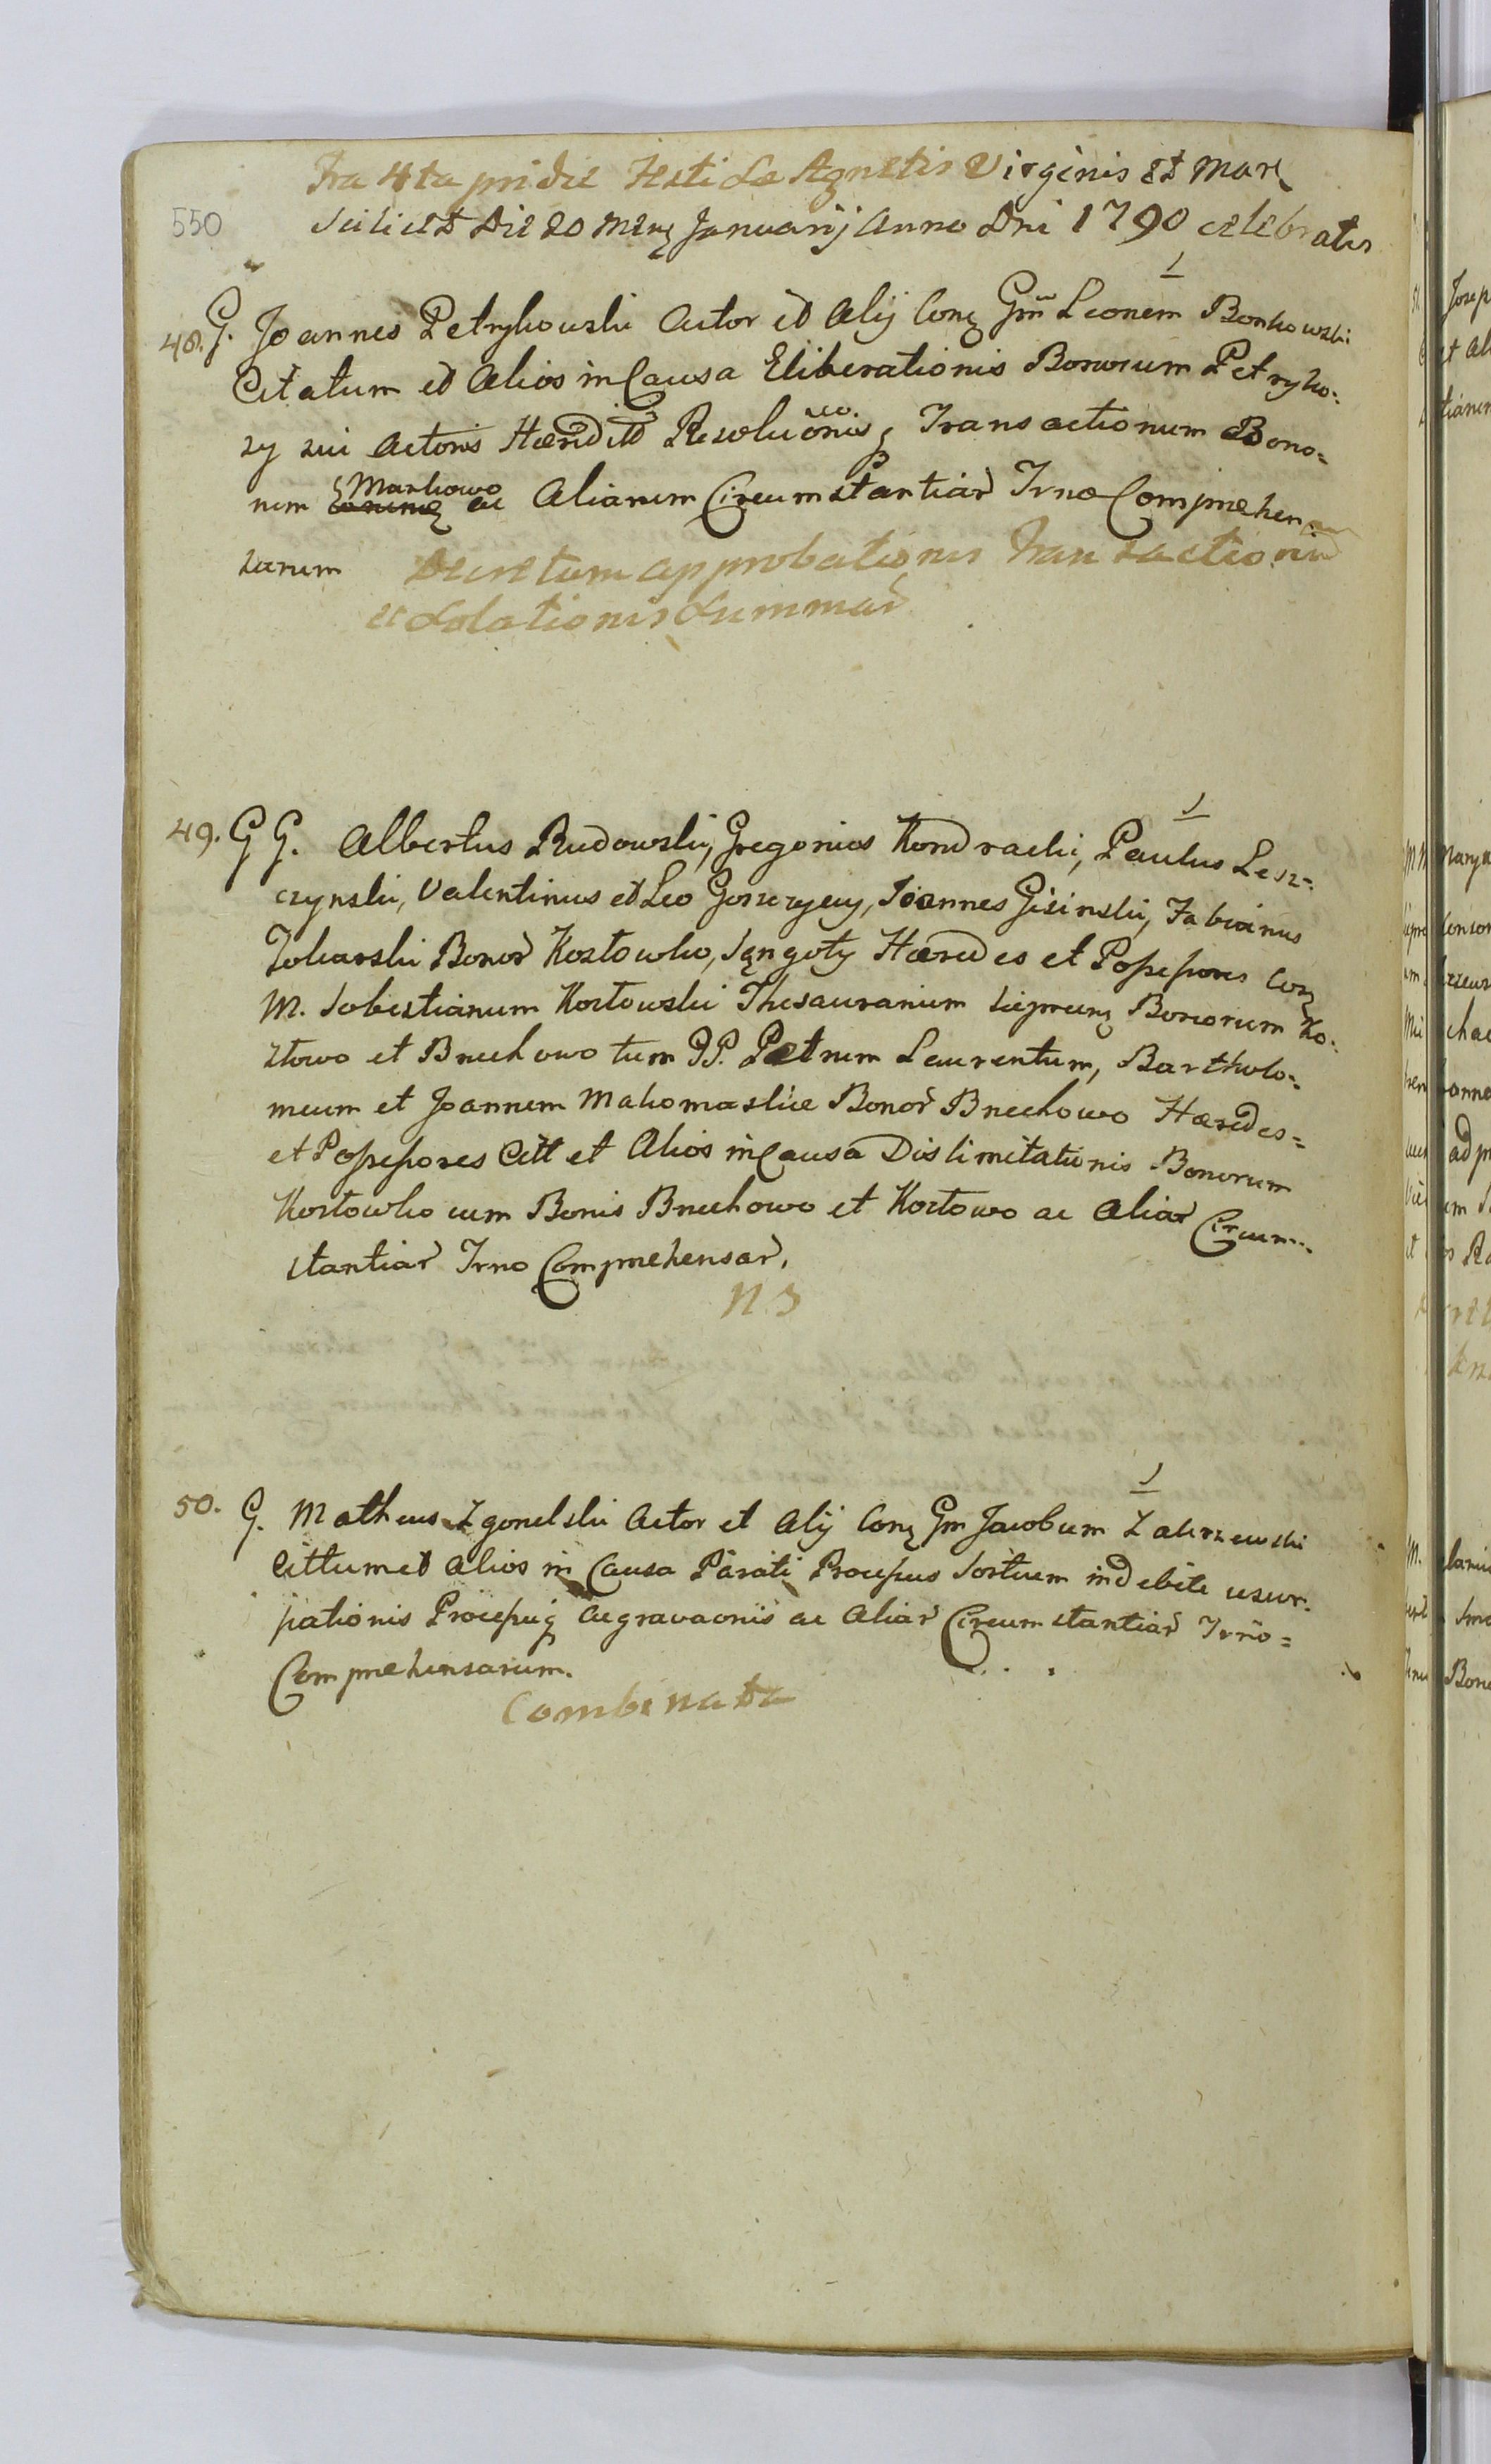 Fra 4ta pridie Festi Se Agnetis Virginis et Mar
550
Scilicet Die 20 Mens Januarij Anno Dni 1790 celebratis
1
48. G. Joannes Petrykowski Actor et Alij Con Gm Leonem Bonkowski
Citatum et Alios in Causa Eliberationis Bonorum Petryko=
zy sui Actoris Hæredit Resolutionis, Transactionum Bono=
rum Markowo ac Aliarum Circumstantiar Trno Comprehen
sarum Decretum approbationis Transactionis
et Solationis Summar
1
49. G G. Albertus Rudowski, Gregorius Kondracki, Paulus Lesz=
czynski, Valentinus et Leo Goszczyccy, Joannes Gisinski, Fabianus
Zokarski Bonor Kostowko, Sęngoty Hæredes et Possessores Con
M. Sebestianum Kostowski Thesaurarium Sieprcens Bonorum Ko=
ztowo et Bruchowo tum GG. Petrum Laurentum, Bartholo=
meum et Joannem Makomaskie Bonor Bruchowo Hæredes=
et Possessores Citt et Alios in Causa Dislimitationis Bonorum
Kostowko cum Bonis Bruchowo et Kostowo ac Aliar Circum=
stantiar Trno Comprehensar.
N. S
1
50. G. Matheus Zgonelski Actor et Alij Con Gm Jacobum Zakrzewski
Cittum et Alios in Causa Parati Processus Sortium indebite usur=
pationis Processus Aegravaonis ac Aliar Circumstantiar Trno=
Comprehensarum.
Combinata